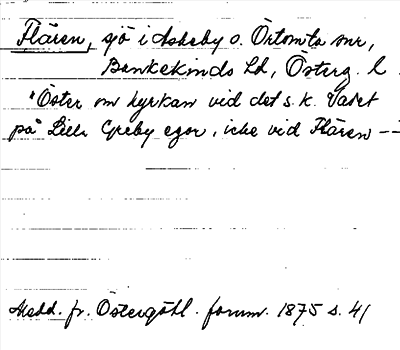 Flären, sjö i Askeby o. Örtomta snr,
Bankekinds hd, Österg. l.
"Öster om kyrkan vid det s.k. Vadet
på Lilla Greby egor, icke vid Flären --
Medd. fr. Östergötl. fornm. 1875 s. 41